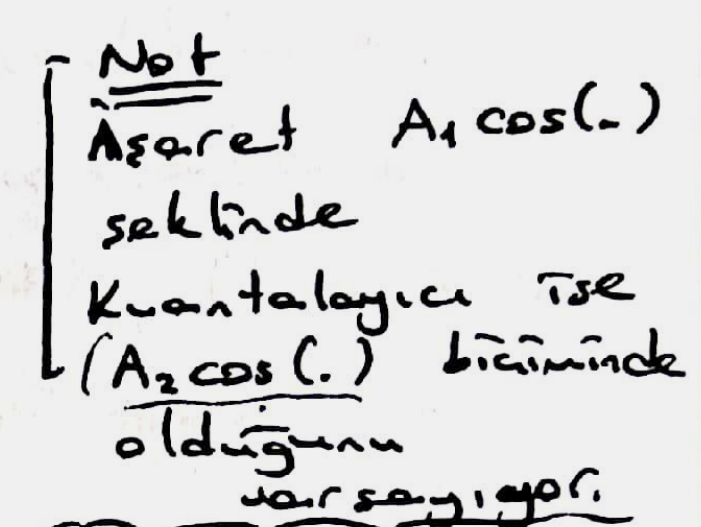 Not
İşaret A₁ cos(.)
şeklinde
Kuantalayıcı ise
(A₂ cos(.) biçiminde
olduğunu
varsayıyor.